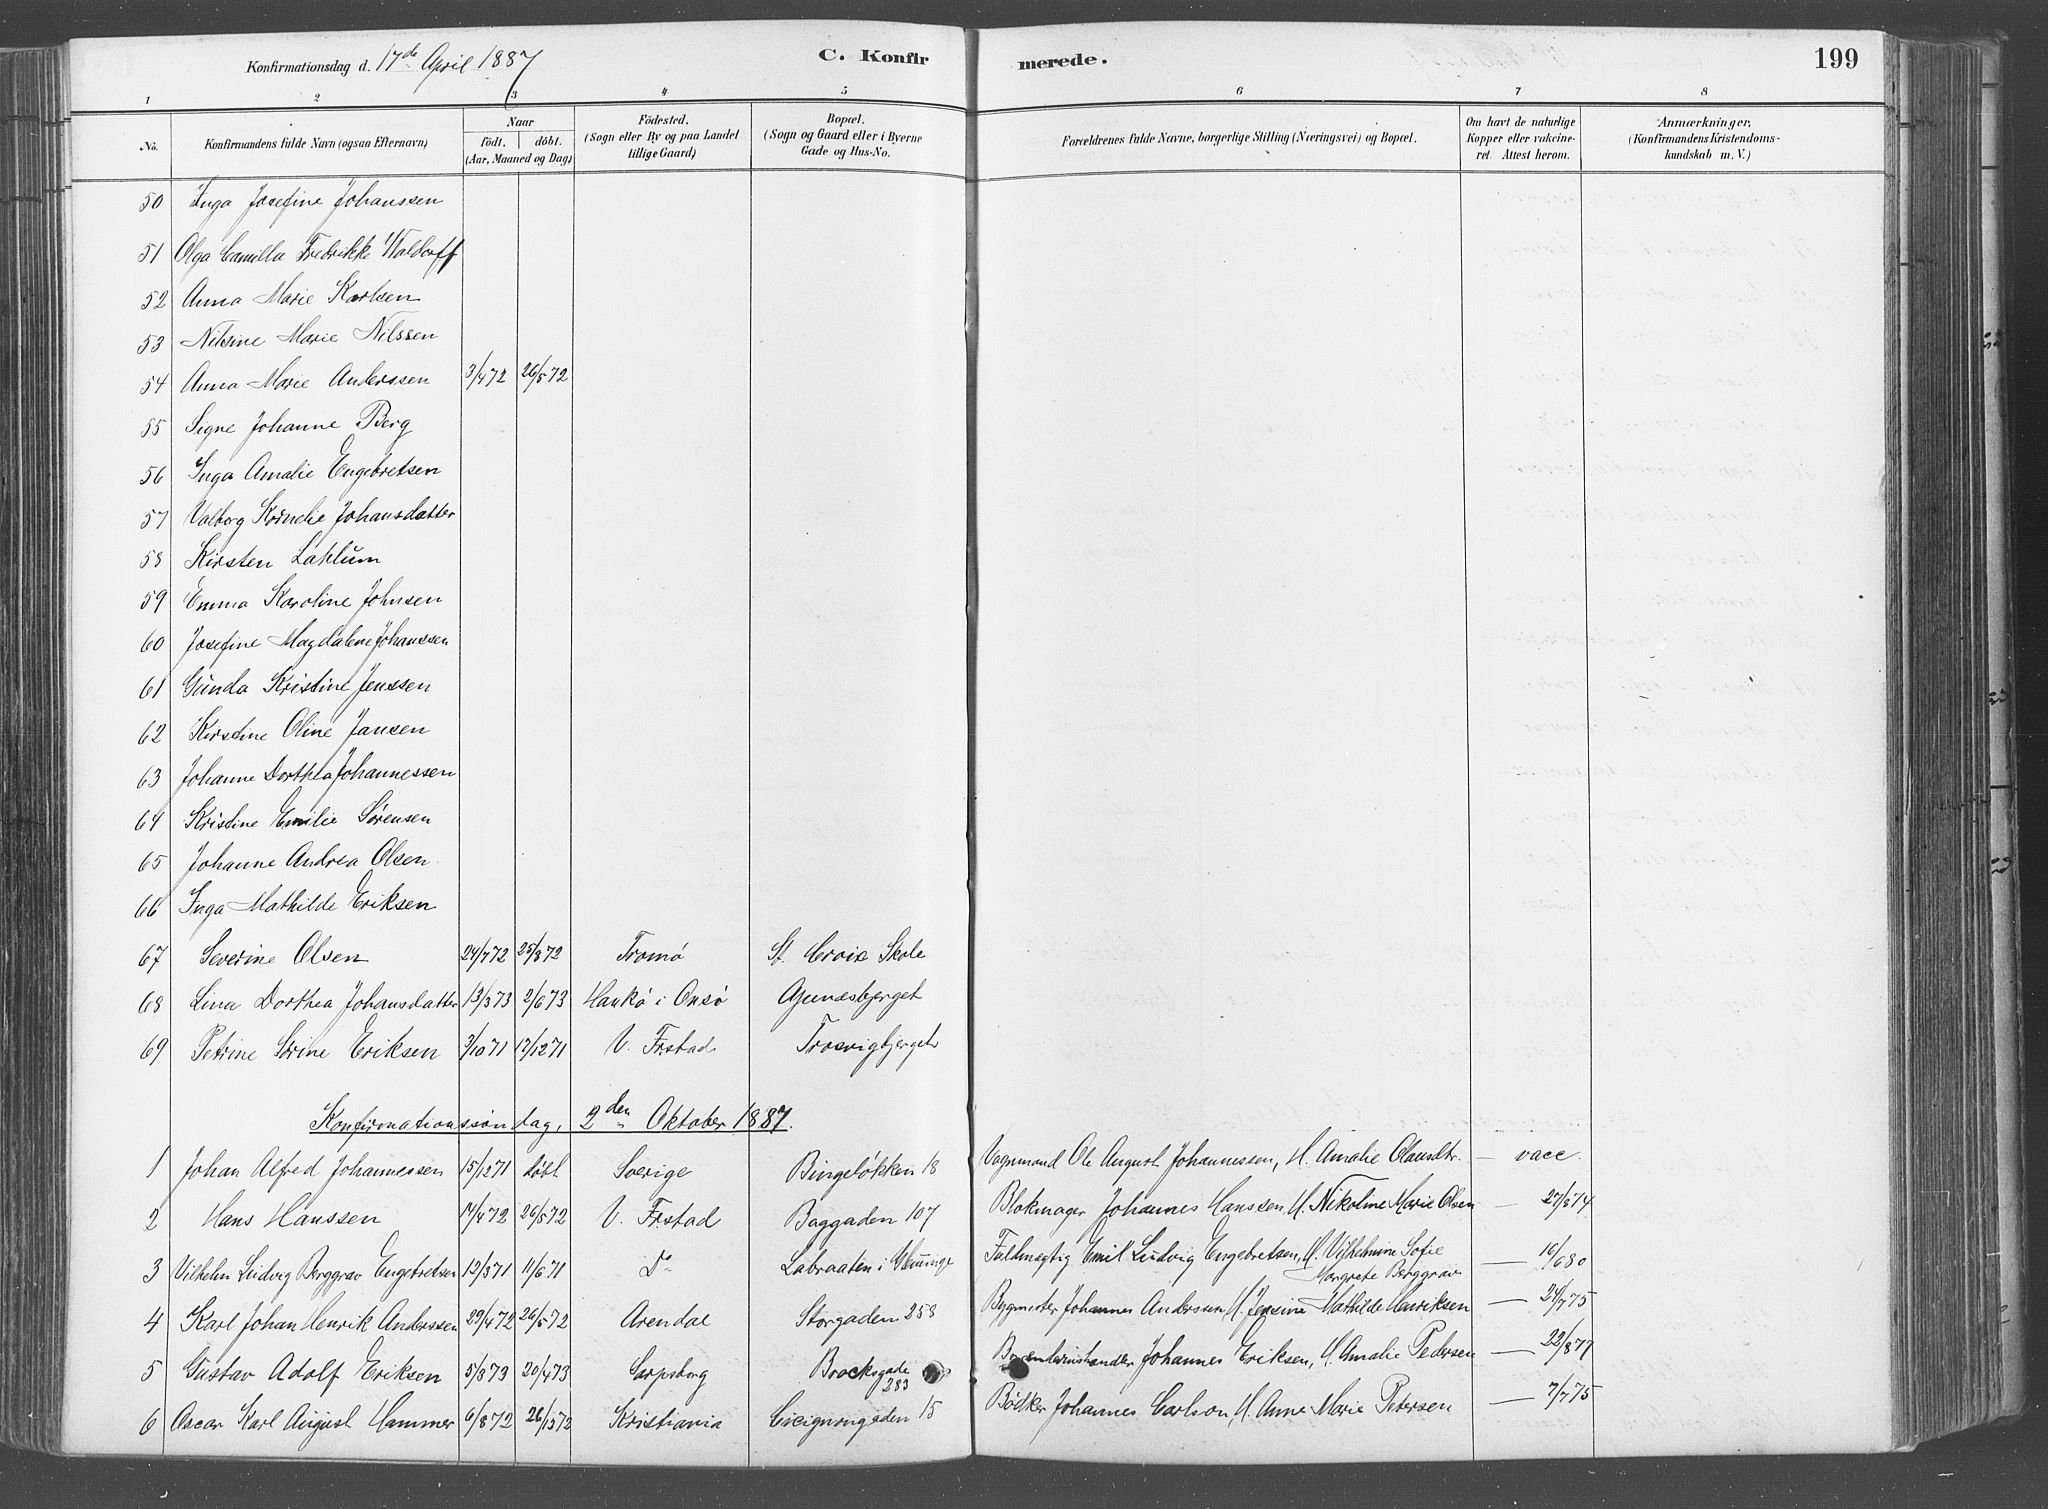 Konfirmationsdag d. 17de April 1887 C. Konfirmerede. 199
1 2 3 4 5 6 7 8
No. Konfirmandens fulde Navn (ogsaa Efternavn) Naar födt. döbt. (Aar, Maaned og Dag) Födested. (Sogn eller By og paa Landet tillige Gaard) Bopæl. (Sogn og Gaard eller i Byerne Gade og Hus-No. Forældrenes fulde Navne, borgerlige Stilling (Næringsvei) og Bopæl. Om havt de naturlige Kopper eller vakcineret. Attest herom. Anmærkninger. (Konfirmandens Kristendomskundskab m. V.)
50 Inga Josefine Johanssen
51 Olga Camilla Fredrikke Waldorff
52 Anna Marie Karlsen
53 Nilsine Marie Nilssen
54 Anna Marie Anderssen 3/4 72 26/5 72
55 Signe Johanne Berg
56 Inga Amalie Engebretsen
57 Valborg Kornelie Johansdatter
58 Kirsten Laklum
59 Emma Karoline Johnsen
60 Josefine Magdalene Johanssen
61 Gunda Kristine Jenssen
62 Kirstine Oline Jansen
63 Johanne Dorthea Johannessen
64 Kristine Emilie Sørensen
65 Johanne Andrea Olsen
66 Inga Mathilde Eriksen
67 Severine Olsen 24/7 72 25/8 72 Tromø St. Croix Skole
68 Lina Dorthea Johansdatter 13/3 73 2/6 73 Hankø i Onsø
69 Petrine Sørine Eriksen 3/10 71 17/12 71 V. Frstad Trosvigbjerget
Konfirmationssøndag, 2den Oktober 1887.
1 Johan Alfred Johannessen 15/12 71 døbt Sverige Bingeløkken 18 Vognmand Ole August Johannessen, H. Amalie Olausdtr. — vacc.
2 Hans Hanssen 14/4 72 26/5 72 V. Frstad Baggaden 107 Blokmager Johannes Hanssen, H. Nikoline Marie Olsen — 27/8 74
3 Vilhelm Ludvig Berggrav Engebretsen 13/3 71 11/6 71 Do Labraaten i Glemminge Fuldmægtig Emil Ludvig Engebretsen, H. Vilhelmine Sofie Margrete Berggrav — 16/6 80
4 Karl Johan Henrik Anderssen 29/4 72 26/5 72 Arendal Storgaden 258 Bygmester Johannes Anderssen, H. Jensine Mathilde Henriksen — 24/7 75
5 Gustav Adolf Eriksen 5/3 73 20/4 73 Sarpsborg Brocksgade 283 Johannes Eriksen, H. Amalie Pedersen — 22/8 79
6 Oscar Karl August Hammer 6/8 72 26/12 72 Kristiania Creignongaden 15 Bødker Johannes Carlson, H. Anne Marie Petersen — 7/7 75